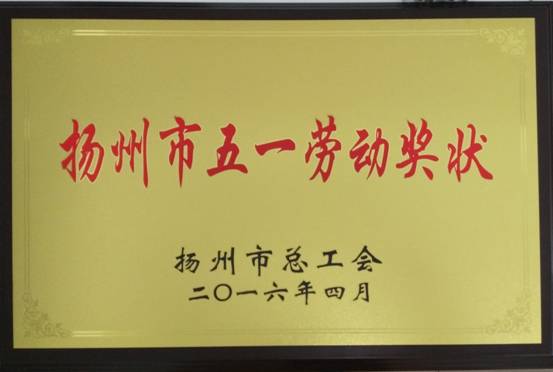 扬州市五一劳动奖状
扬州市总工会
二〇一六年四月